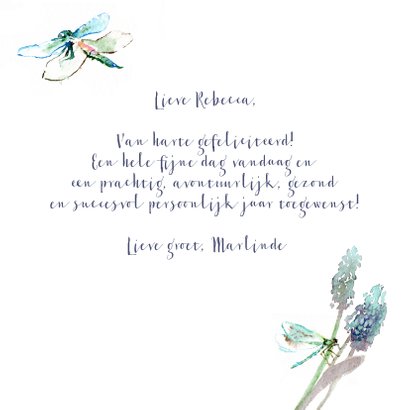 Lieve Rebecca,
Van harte gefeliciteerd!
Een hele fijne dag vandaag en
een prachtig, avontuurlijk, gezond
en succesvol persoonlijk jaar toegewenst!
Lieve groet, Marlinde